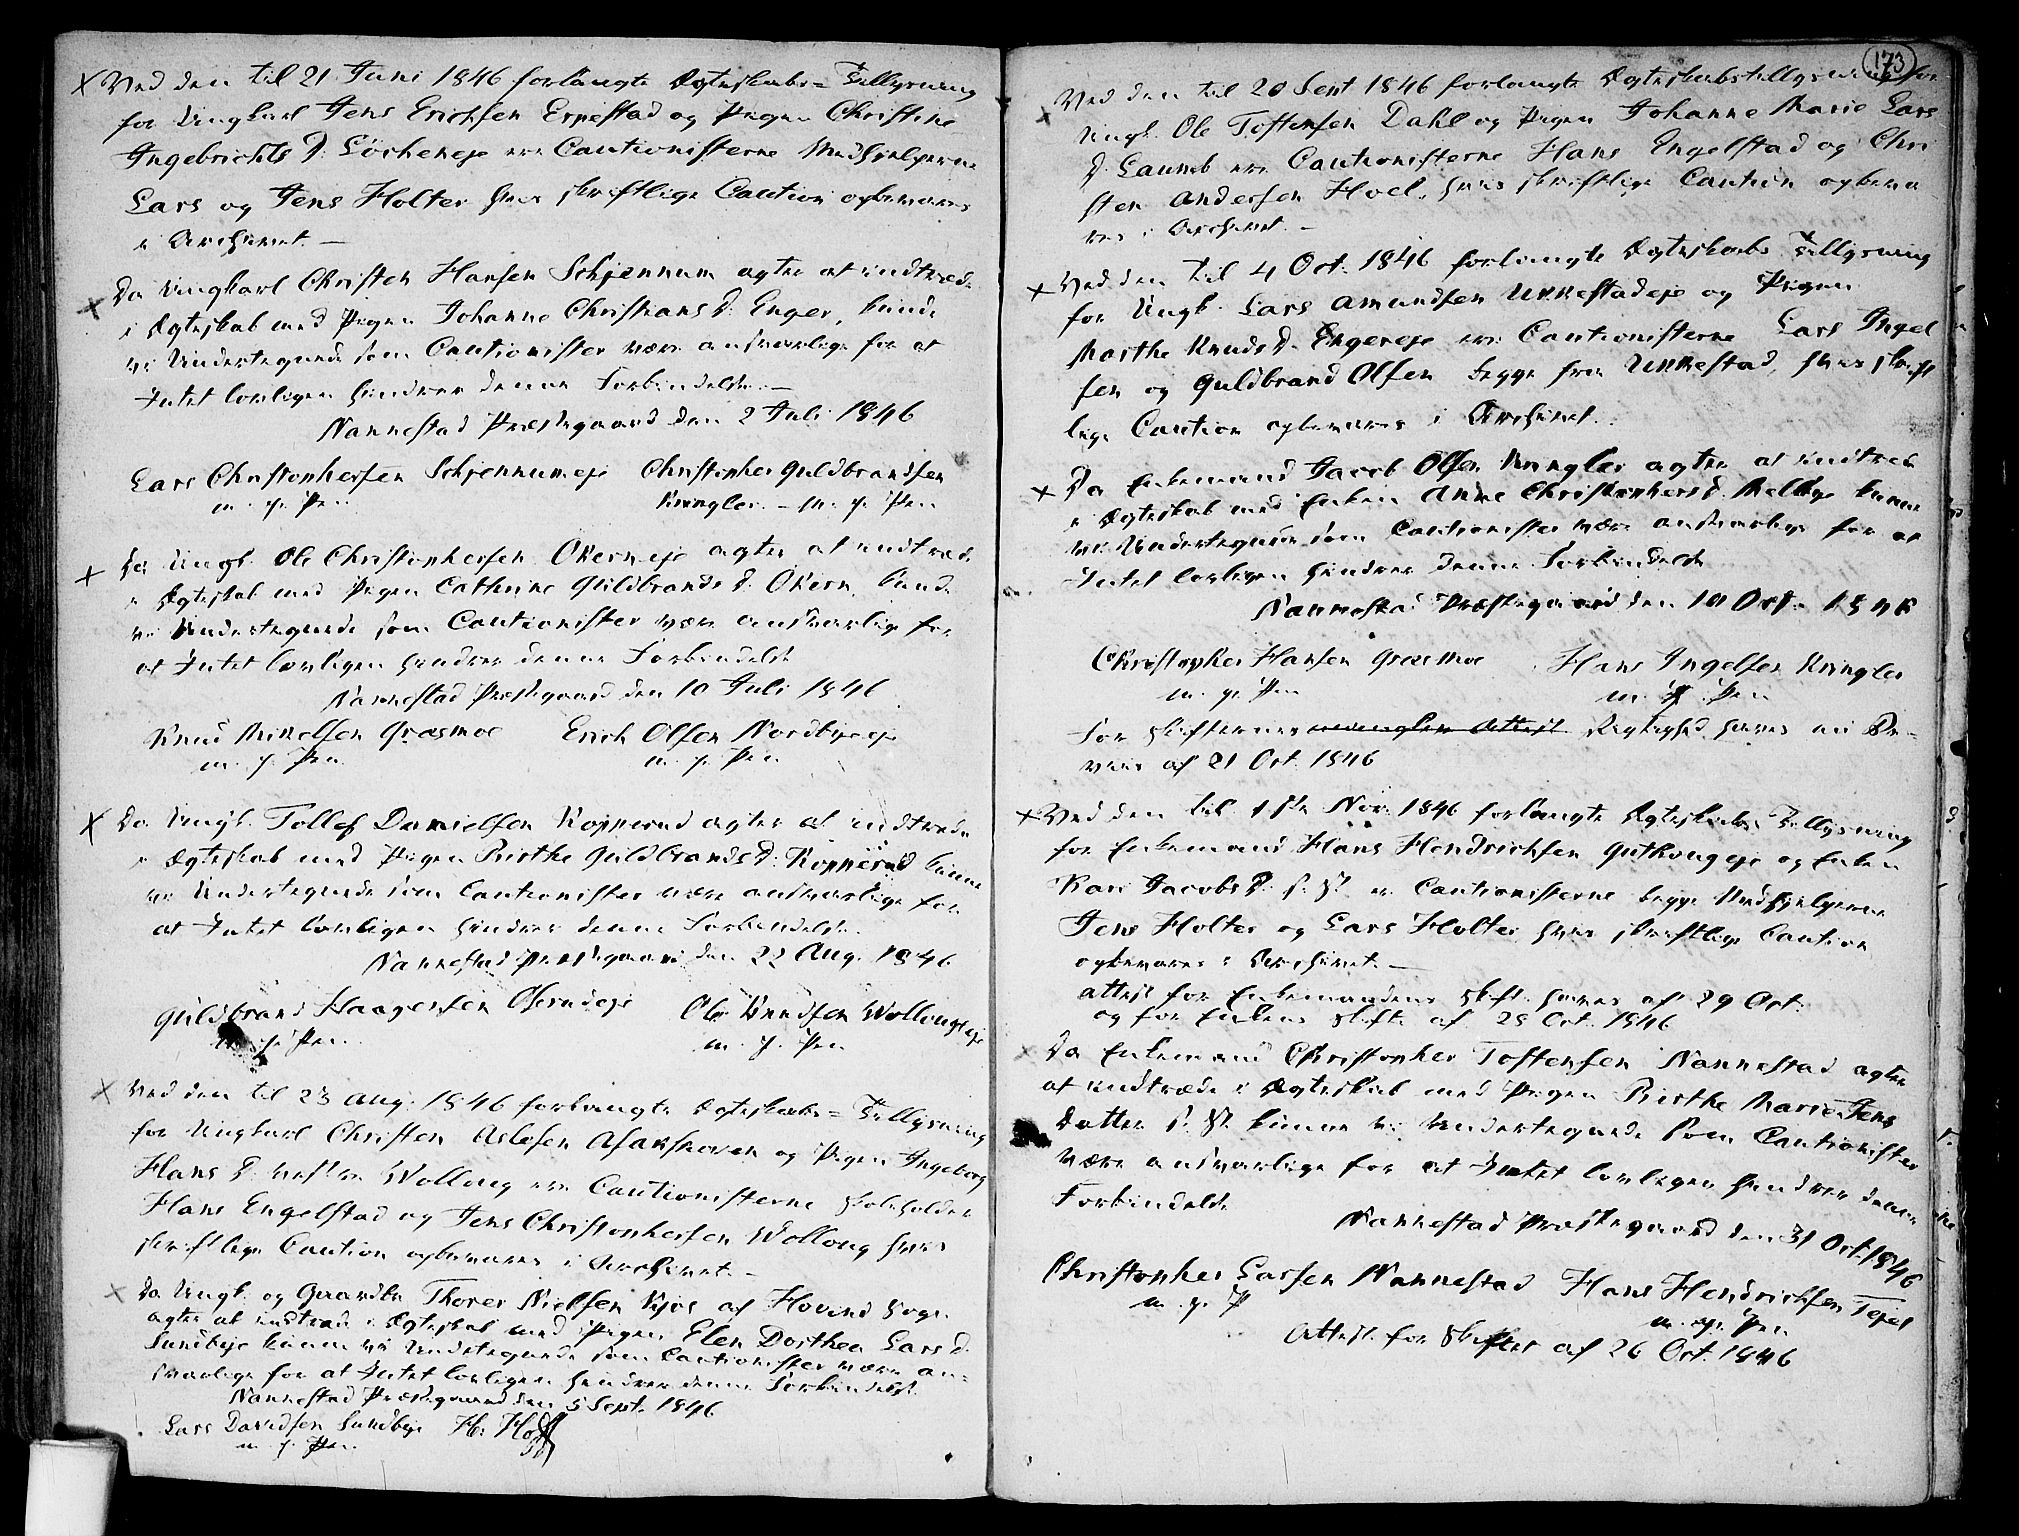 X Ved den til 21 Juni 1846 forlangte Ægteskabs=Tillysning
for Ungkarl Jens Erichsen Ernestad og Pigen Christine
Ingebrichts D. Löcheneje ere Cautionisterne Medhjelperne
Lars og Jens Holter hvis skriftlige Caution opbevares
i Archivet. —
X Da Ungkarl Christen Hansen Schjennum agter at indtræde
i Ægteskab med Pigen Johanne Christians D. Enger, kunde
vi Undertegnede som Cautionister være ansvarlige for at
Intet lovligen hindrer denne Forbindelse. —
Nannestad Præstegaard den 2 Juli 1846
Lars Christophersen Schjennumeje Christopher Guldbrandsen
m. p. Pen Kringler. — m. p. Pen
+ Da Ungk. Ole Christophersen Okerneje agter at indtræde
i Ægteskab med Pigen Cathrine Guldbrands D. Okern, kunde
vi Undertegnede som Cautionister være ansvarlige for
at Intet lovligen hindrer denne Forbindelse
Nannestad Præstegaard den 10 Juli 1846
Knud Mikelsen Græsmoe Erich Olsen Nordbyeje
m. p. Pen m. p. Pen
X Da Ungk. Tollef Danielsen Kopperud agter at indtræde
i Ægteskab med Pigen Birthe Guldbrands D. Kopperud kunne
vi Undertegnede som Cautionister være ansvarlige for
at Intet lovligen hindrer denne Forbindelse.
Nannestad Præstegaard den 22 Aug. 1846
Guldbrand Haagensen Åsrudeje Ole Knudsen Wollongeje
m. p. Pen. m. p. Pen
X Ved den til 23 Aug. 1846 forlangte Ægteskabs=Tillysning
for Ungkarl Christen Aslesen Asakskoven og Pigen Ingeborg
Hans D. vestre Wollong ere Cautionisterne Skoleholder
Hans Engelstad og Jens Christophersen Wollong hvis
skriftlige Caution opbevares i Archivet. —
X Da Ungk. og Gaardbr. Thorer Nielsen Kjos af Hovind Sogn
agter at indtræde i Ægteskab med Pigen Elen Dorthea Lars D.
Sundbye kunne vi Undertegnede som Cautionister være an=
svarlige for at Intet lovligen hindrer denne Forbindelse
Nannestad Præstegaard den 5 Sept. 1846
Lars Davidsen Sundbye H. Hoff
m. p. Pen.
173
X Ved den til 20 Sept 1846 forlangte Ægteskabstillysning for
Ungk. Ole Tostensen Dahl og Pigen Johanne Marie Lars
D. Laumb ere Cautionisterne Hans Engelstad og Chri
sten Andersen Hoel, hvis skriftlige Caution opbeva
res i Archivet. —
X Ved den til 4 Oct. 1846 forlangte Ægteskabs Tillysning
for Ungk. Lars Amundsen Ukkestadeje og Pigen
Marthe Knuds D. Engereje ere Cautionisterne Lars Ingel
sen og Guldbrand Olsen begge fra Ukkestad, hvis skrift
lige Caution opbevares i Archivet.
X Da Enkemand Jacob Olsen Kringler agter at indtræde
i Ægteskab med Enken Anne Christophers D. Melbye kunne
vi Undertegnede som Cautionister være ansvarlige for at
Intet lovligen hindrer denne Forbindelse
Nannestad Præstegaard den 10 Oct. 1846
Christopher Hansen Græsmoe Hans Ingelsen Kringler
m. p. Pen m. p. Pen
For Skifternes Rigtighed haves en Be=
viis af 21 Oct. 1846
X Ved den til 1ste Nov. 1846 forlangte Ægteskabs Tillysning
for Enkemand Hans Hendrichsen Gutkongeje og Enken
Kari Jacobs D. s. St. er Cautionisterne begge Medhjelperne
Jens Holter og Lars Holter, hvis skriftlige Caution
opbevares i Archivet. —
Attest for Enkemandens Skifte haves af 29 Oct.
og for Enkens Skifte af 28 Oct. 1846
X Da Enkemand Christopher Tostensen Nannestad agter
at indtræde i Ægteskab med Pigen Birthe Marie Jens
Datter s. St. kunne vi Undertegnede som Cautionister
være ansvarlige for at Intet lovligen hindrer denne
Forbindelse
Nannestad Præstegaard den 31 Oct. 1846
Christopher Larsen Nannestad Hans Hendrichsen Tejet
m. p. P m. p. Pen
Attest for Skiftet af 26 Oct. 1846